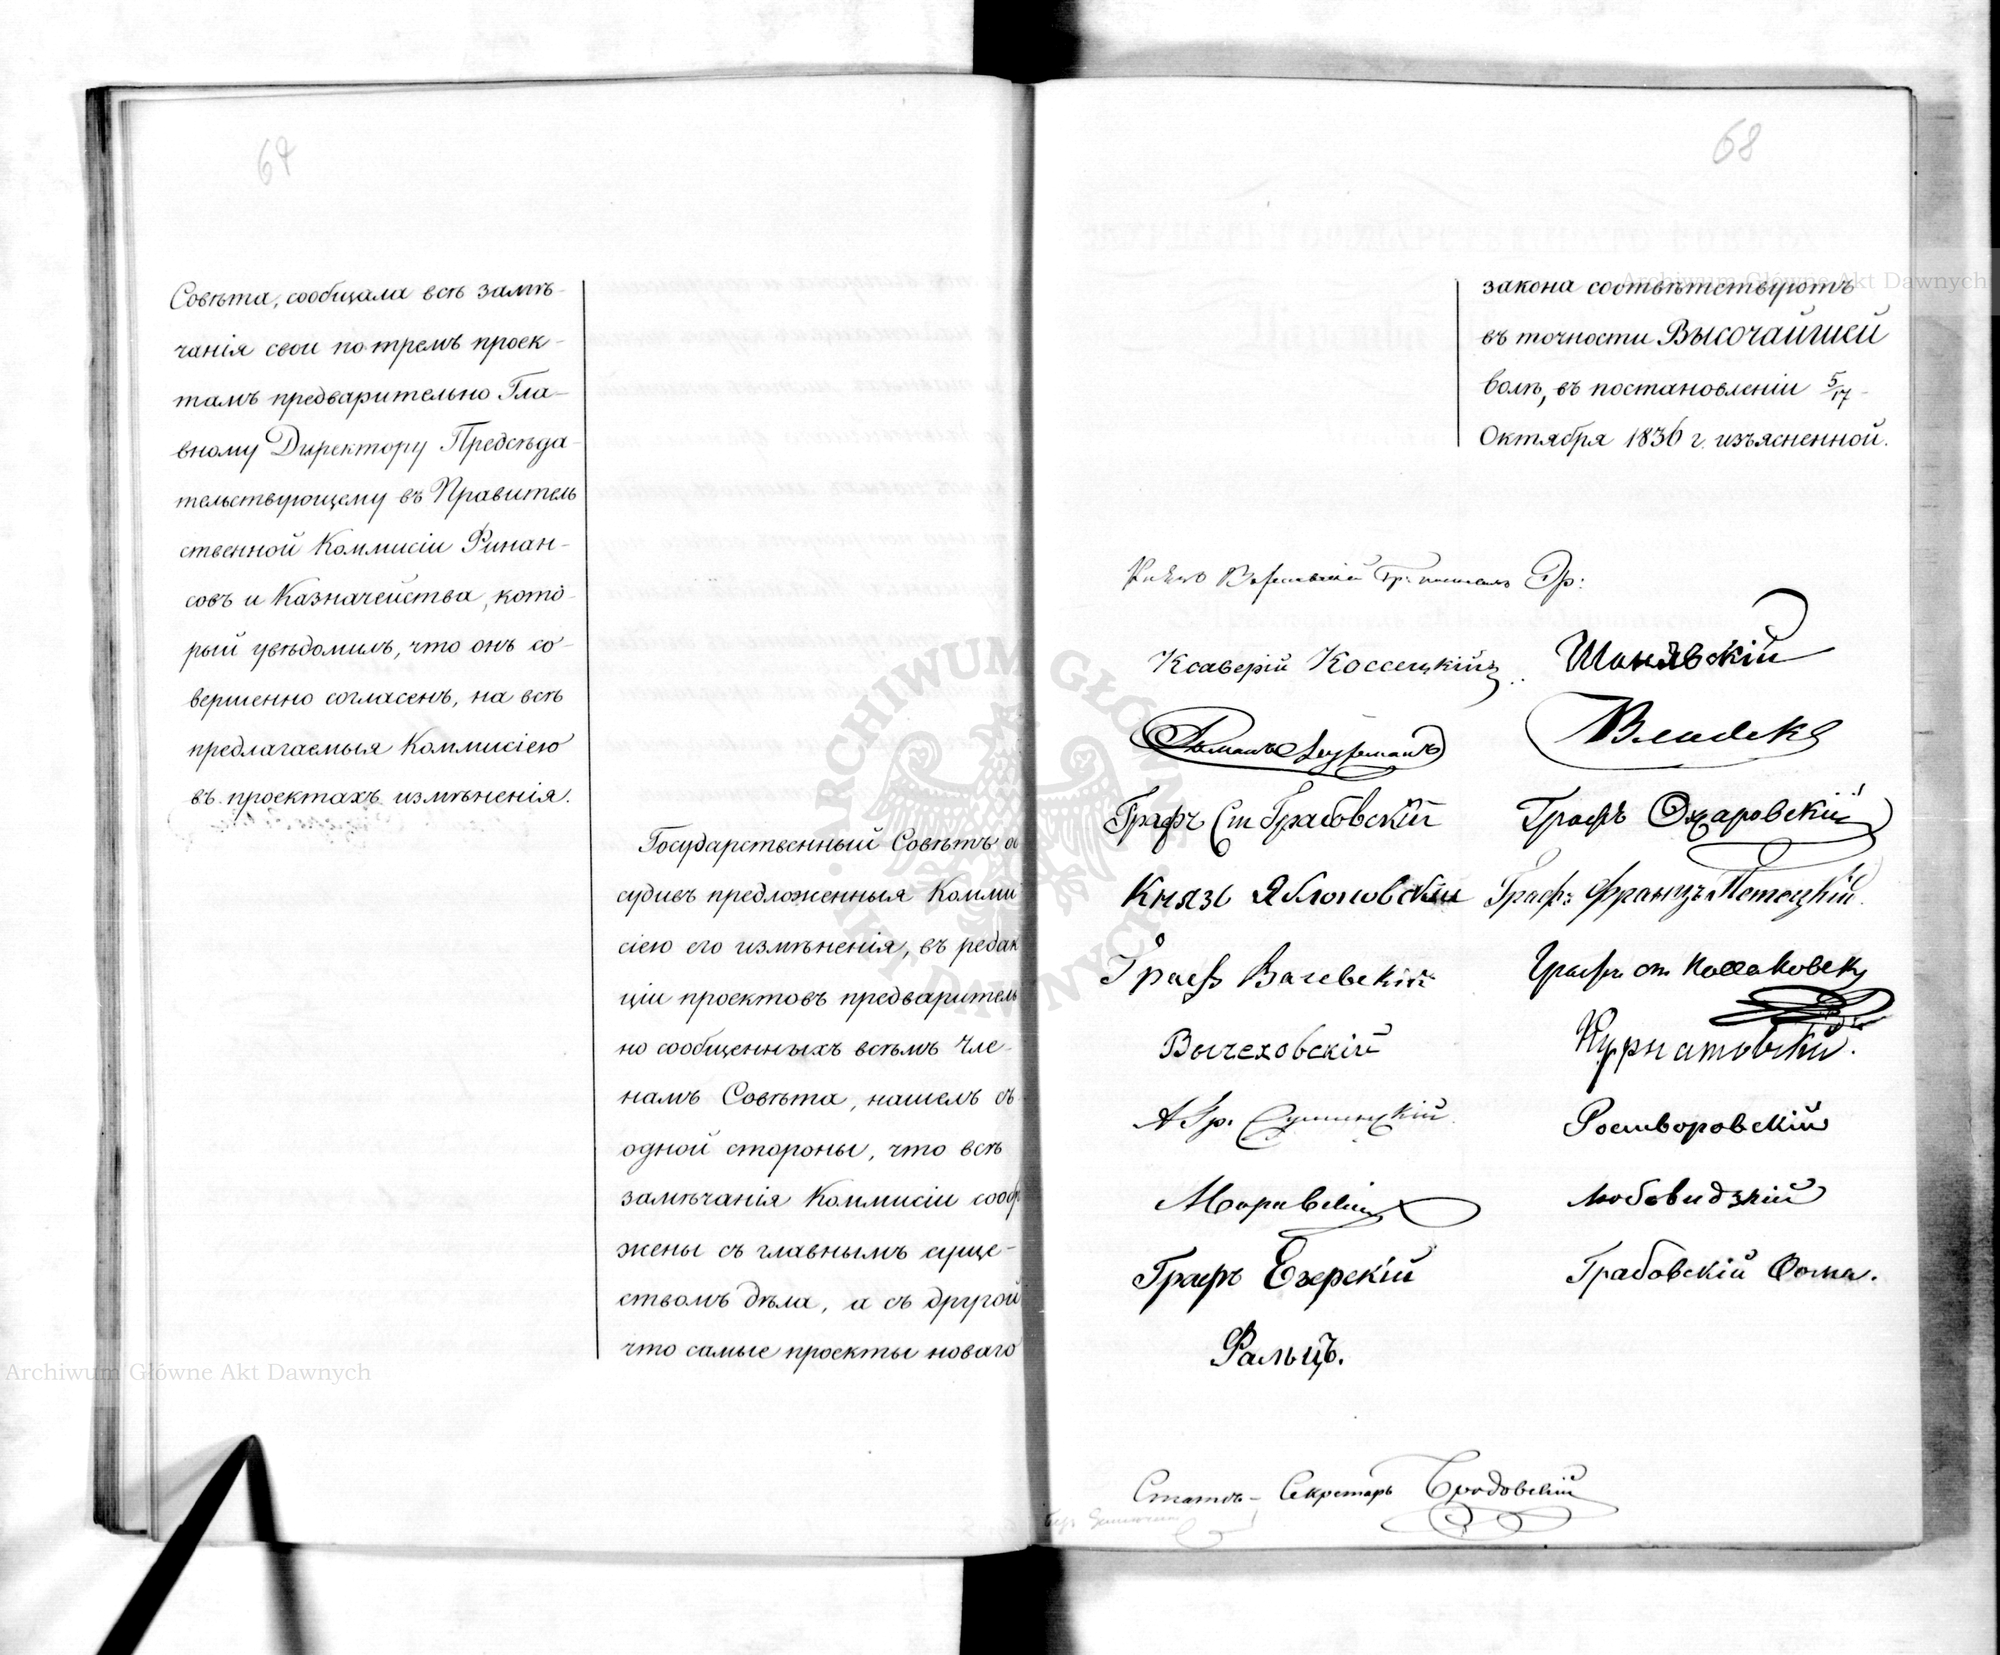 67
Совѣта, сообщала всѣ замѣ-
чанія свои по тремъ проек-
тамъ предварительно Гла-
вному Директору Предсѣда-
тельствующему въ Правитель
ственной Коммисіи Финан-
совъ и Казначейства, кото-
рый увѣдомилъ, что онъ со-
вершенно согласенъ, на всѣ
предлагаемыя Коммисіею
въ проектахъ измѣненія.
Государственный Совѣтъ об
судивъ предложенныя Комми
сіею его измѣненія, въ редак
ціи проектовъ предваритель
но сообщенныхъ всѣмъ Чле-
намъ Совѣта, нашелъ съ
одной стороны, что всѣ
замѣчанія Коммисіи сооб
жены съ главнымъ суще-
ствомъ дѣла, а съ другой
что самые проекты новаго
68
закона соотвѣтствуютъ
въ точности Высочайшей
волѣ, въ постановленіи 5/17-
Октября 1836 г. изъясненной.
Ксаверій Коссецкій
Шанявскій
Графъ Ст Грабовскій
Графъ Ожаровскій
Князь Яблоновскій
Графъ Францъ Потоцкій
Графъ
Графъ ст
Вычеховскій
Курнатовскій.
А Гр.
Ростворовскій
Любовидзкій
Графъ Езерскій
Грабовскій Фома.
Фальцъ.
Статсъ-Секретарь Бродовскій
Archiwum Główne Akt Dawnych
Archiwum Główne Akt Dawnych
ARCHIWUM GŁÓWNE AKT DAWNYCH